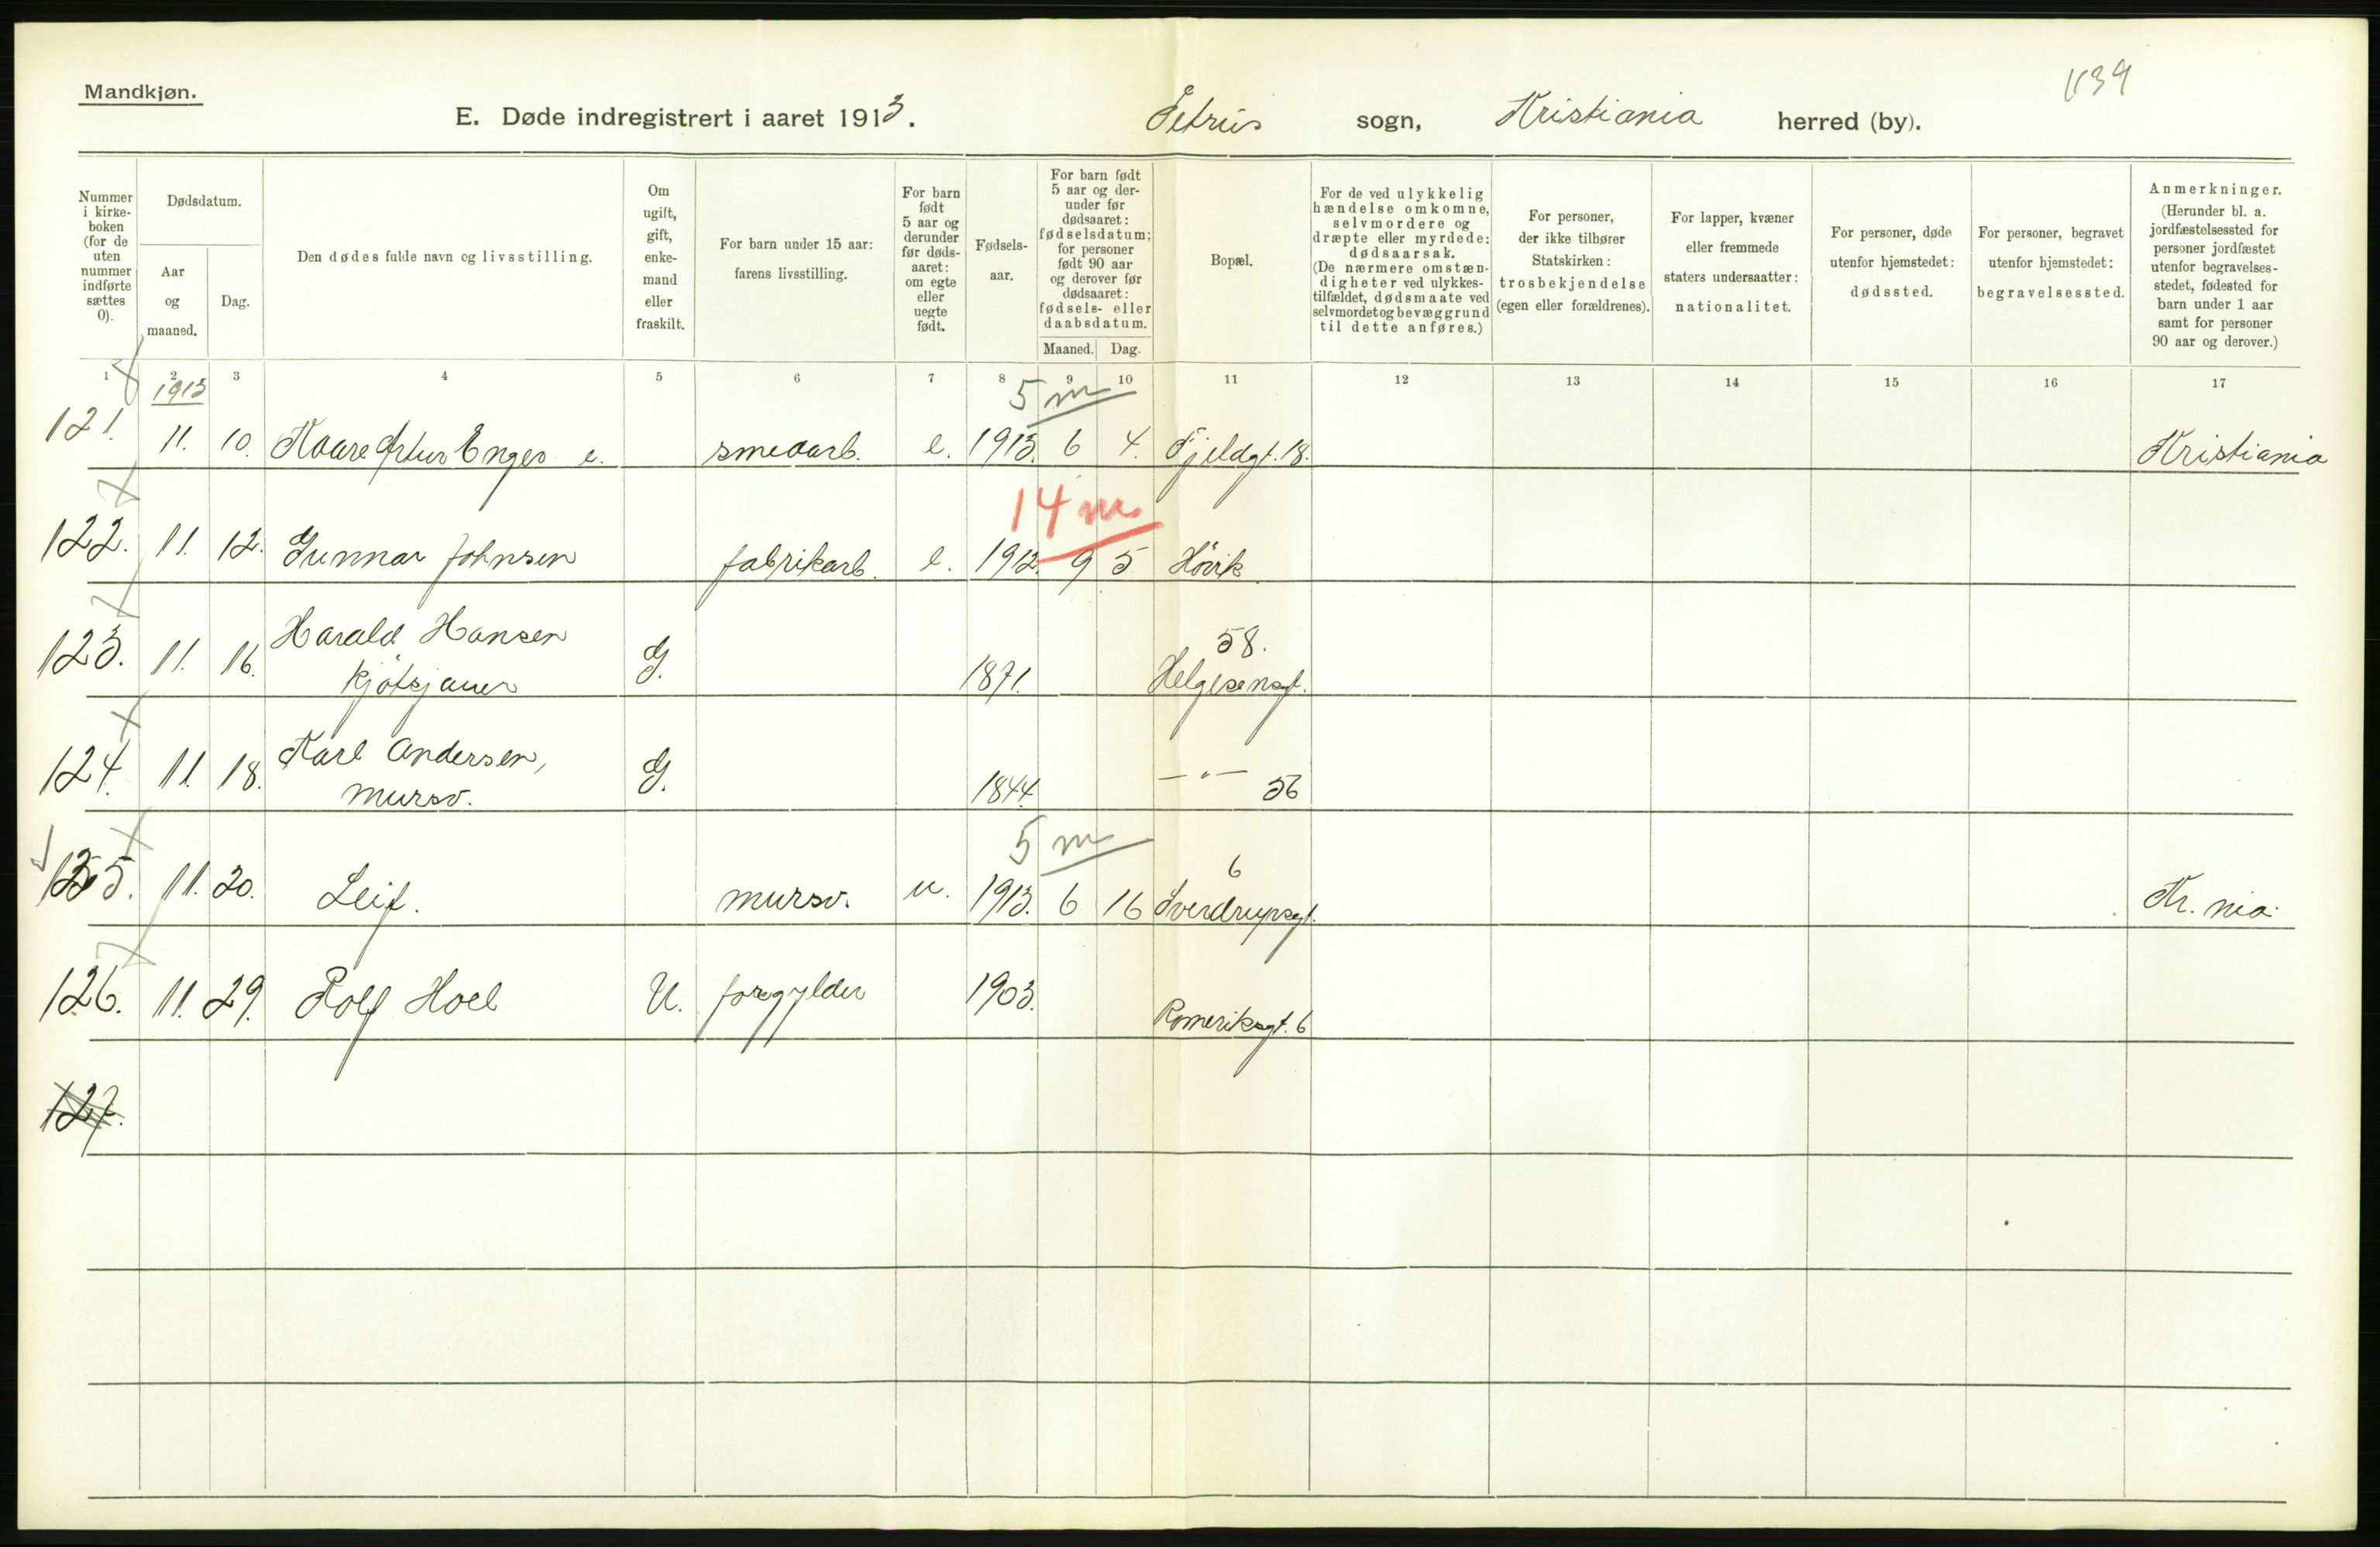 Mandkjøn.
1139
E. Døde indregistrert i aaret 1913. Petrus sogn, Kristiania herred (by).
Nummer i kirke-boken (for de uten nummer indførte sættes 0).
Dødsdatum.
Aar og maaned.
Dag.
Den dødes fulde navn og livsstilling.
Om ugift, gift, enke-mand eller fraskilt.
For barn under 15 aar: farens livsstilling.
For barn født 5 aar og derunder før døds-aaret: om egte eller uegte født.
Fødsels-aar.
For barn født 5 aar og der-under før dødsaaret: fødselsdatum; for personer født 90 aar og derover før dødsaaret: fødsels- eller daabsdatum.
Maaned. Dag.
Bopæl.
For de ved ulykkelig hændelse omkomne, selvmordere og dræpte eller myrdede: dødsaarsak. (De nærmere omstæn-digheter ved ulykkes-tilfældet, dødsmaate ved selvmordet og bevæggrund til dette anføres.)
For personer, der ikke tilhører Statskirken: trosbekjendelse (egen eller forældrenes).
For lapper, kvæner eller fremmede staters undersaatter: nationalitet.
For personer, døde utenfor hjemstedet: dødssted.
For personer, begravet utenfor hjemstedet: begravelsessted.
Anmerkninger. (Herunder bl. a. jordfæstelsessted for personer jordfæstet utenfor begravelses-stedet, fødested for barn under 1 aar samt for personer 90 aar og derover.)
1 2 3 4 5 6 7 8 9 10 11 12 13 14 15 16 17
1913
5 m
121. 11. 10. Kaare Artur Enger e. smedarb. e. 1913. 6 4. Fjeldgt. 18. Kristiania
14 m
122. 11. 12. Gunnar Johnsen fabrikarb. e. 1912. 9 5 Høvik
123. 11. 16. Harald Hansen G. 1871. 58.
kjøtsjauer Helgesensgt.
124. 11. 18. Karl Andersen, G. 1844 —"— 56
mursv.
5 m
125. 11. 20. Leif. mursv. u. 1913. 6 16 6
Sverdrupsgt. Kr.nia
126. 11. 29. Rolf Hoel U. forgylder 1903. Romeriksgt. 6
127.